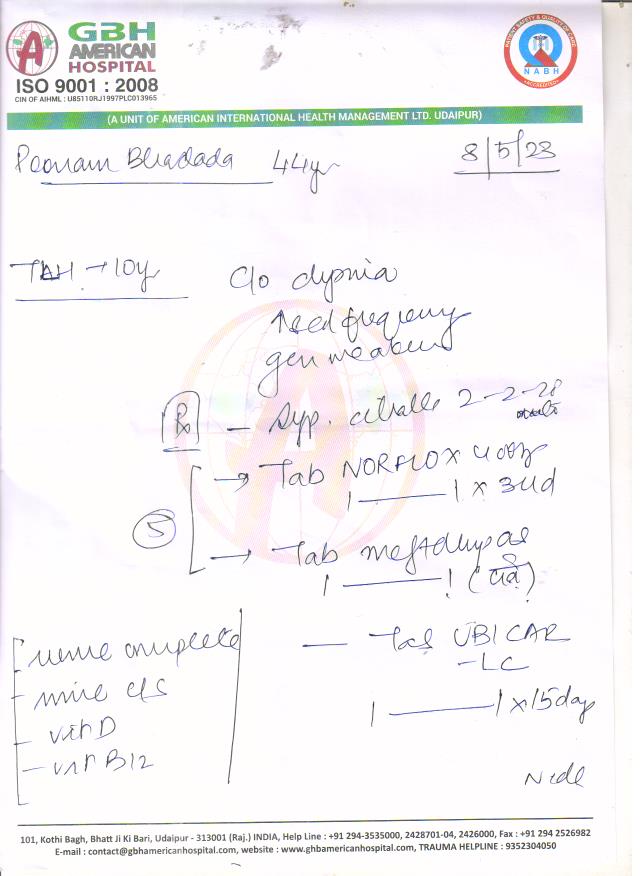 GBH
AMERICAN
HOSPITAL
ISO 9001 : 2008
CIN OF AIHML : U85110RJ1997PLC013965
PATIENT SAFETY & QUALITY OF CARE
NABH
ACCREDITED
(A UNIT OF AMERICAN INTERNATIONAL HEALTH MANAGEMENT LTD. UDAIPUR)
Poonam Bhadada 44yr
8/5/23
TAH → 10y
C/o
↑sed frequency
gen weakness
Rx
- Syp. 2-2-2
→ Tab NORFLOX 400mg
1 —— 1 x
5
→ Tab meftalspas
1 —— 1 (दर्द)
— Tab UBICAR
-LC
1 —— 1 x 15 day
urine complete
urine c/s
- vit D
- vit B12
101, Kothi Bagh, Bhatt Ji Ki Bari, Udaipur - 313001 (Raj.) INDIA, Help Line : +91 294-3535000, 2428701-04, 2426000, Fax : +91 294 2526982
E-mail : contact@gbhamericanhospital.com, website : www.ghbamericanhospital.com, TRAUMA HELPLINE : 9352304050